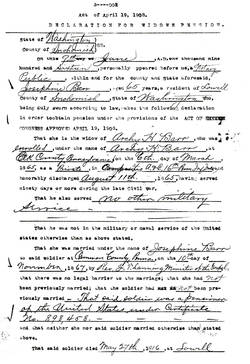 3--008
Act of April 19, 1908.
DECLARATION FOR WIDOWS PENSION.
State of Washington
County of Snohomish
On this 7th day of June, A.D. one thousand nine
hundred and sixteen personally appeared before me, a Notary
Public within and for the county and state aforesaid,
Josephine Barr aged 65 years, a resident of Lowell
County of Snohomish, State of Washington who,
being duly sworn according to law, makes the following declaration
in order to obtain pension under the provisions of the ACT OF
CONGRESS APPROVED APRIL 19, 1908.
That she is the widow of Archie H Barr, who was
enrolled under the name of Archie H Barr, at
Elk County Pennsylvania, on the 6th day of March
1865, as a Private in Company
honorably discharged August 11th, 1865, having served
ninety days or more during the late Civil War.
That he also served no other military
service
That he was not in the military or naval service of the United
States otherwise than as above stated.
That she was married under the name of Josephine
to said soldier at County on the 10 day of
November, 1867, by
that there was no legal barrier to the marriage; that she had not
been previously married; that the soldier had not been pre-
viously married - That said soldier was a pensioner
of the United States under Certificate
No. 898458
and that neither he nor said soldier married otherwise than stated
above.
That said soldier died May 27th, 1916, in Lowell